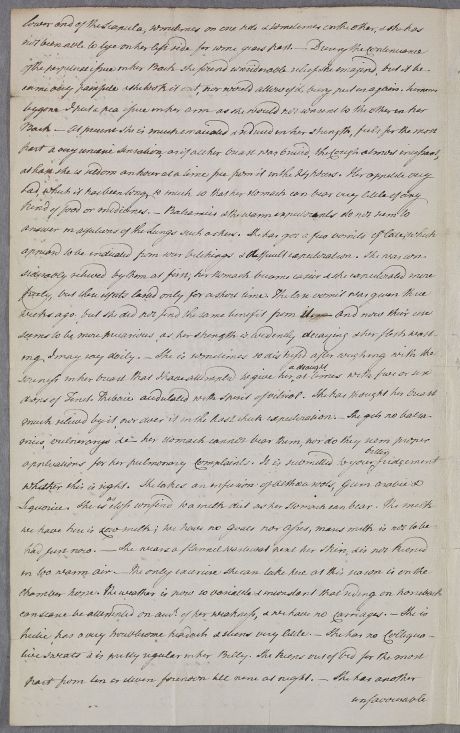 lower end of the Scapula, sometimes on one side & sometimes on the other, & she has
not been able to lye on her left side for some years past. — During the continuance
of the perpetual issue in her Back she found considerable relief she imagined, but it be-
came very painful & she took it out, nor would allow of its being put in again.
I put a pea issue in her arm as she would not consent to the other in her
Back — At present she is much emaciated and weak in her strength, feels for the most
part a very uneasy sensation, as if all her breast was bruised, the Cough almost incessant,
so that she is seldom an hour at a time free from it in the Daytime. Her appetite very
bad, & that it has been long, so much so that her stomach can bear very little of any
kind of food or medicines. — Balsamics & the warm expectorants do not seem to
answer in affections of the Lungs such as hers. She has got a few vomits of late, which
appeared to be indicated from sour belchings & difficult expectoration. She was con-
siderably relieved by them at first, her stomach became easier & she expectorated more
freely, but these effects lasted only for a short time. The last vomit was given three
weeks ago, but she did not find the same benefit from it — and now their use
seems to be more precarious, as her strength is evidently decaying & her flesh wast-
ing, I may say daily. — She is sometimes so distressed after coughing with the
soreness in her breast that I have attempted to give her a draught at times with five or six
drops of Tinct. Thebaic acidulated with Spirit of vitriol. She has thought her breast
much relieved by it, nor does it in the least check expectoration. She gets no balsa-
mics, vulneraries &c — her stomach cannot bear them, nor do they seem proper
applications for her pulmonary complaints. It is submitted to your better judgement
whether this is right. She takes an infusion of althea roots, Gum arabic &
Liquorice. She is as closs confined to a milk diet as her stomach can bear. The milk
we have here is Cow milk; we have no goats nor Asses, mares milk is not to be
had just now. — She wears a flannel waistcoat next her skin, & is not kept
in too warm air. — The only exercise she can take here at this season is on the
chamber horse. The weather is now so variable & inconstant that riding on horseback
can scarce be attempted on acct. of her weakness, & we have no Carriages. — She is
hectic, has a very troublesome headach & sleeps very little. — She has no Colliqua-
tive sweats & is pretty regular in her Belly. She keeps out of bed for the most
part from ten or eleven forenoon till nine at night. — She has another
unfavourable